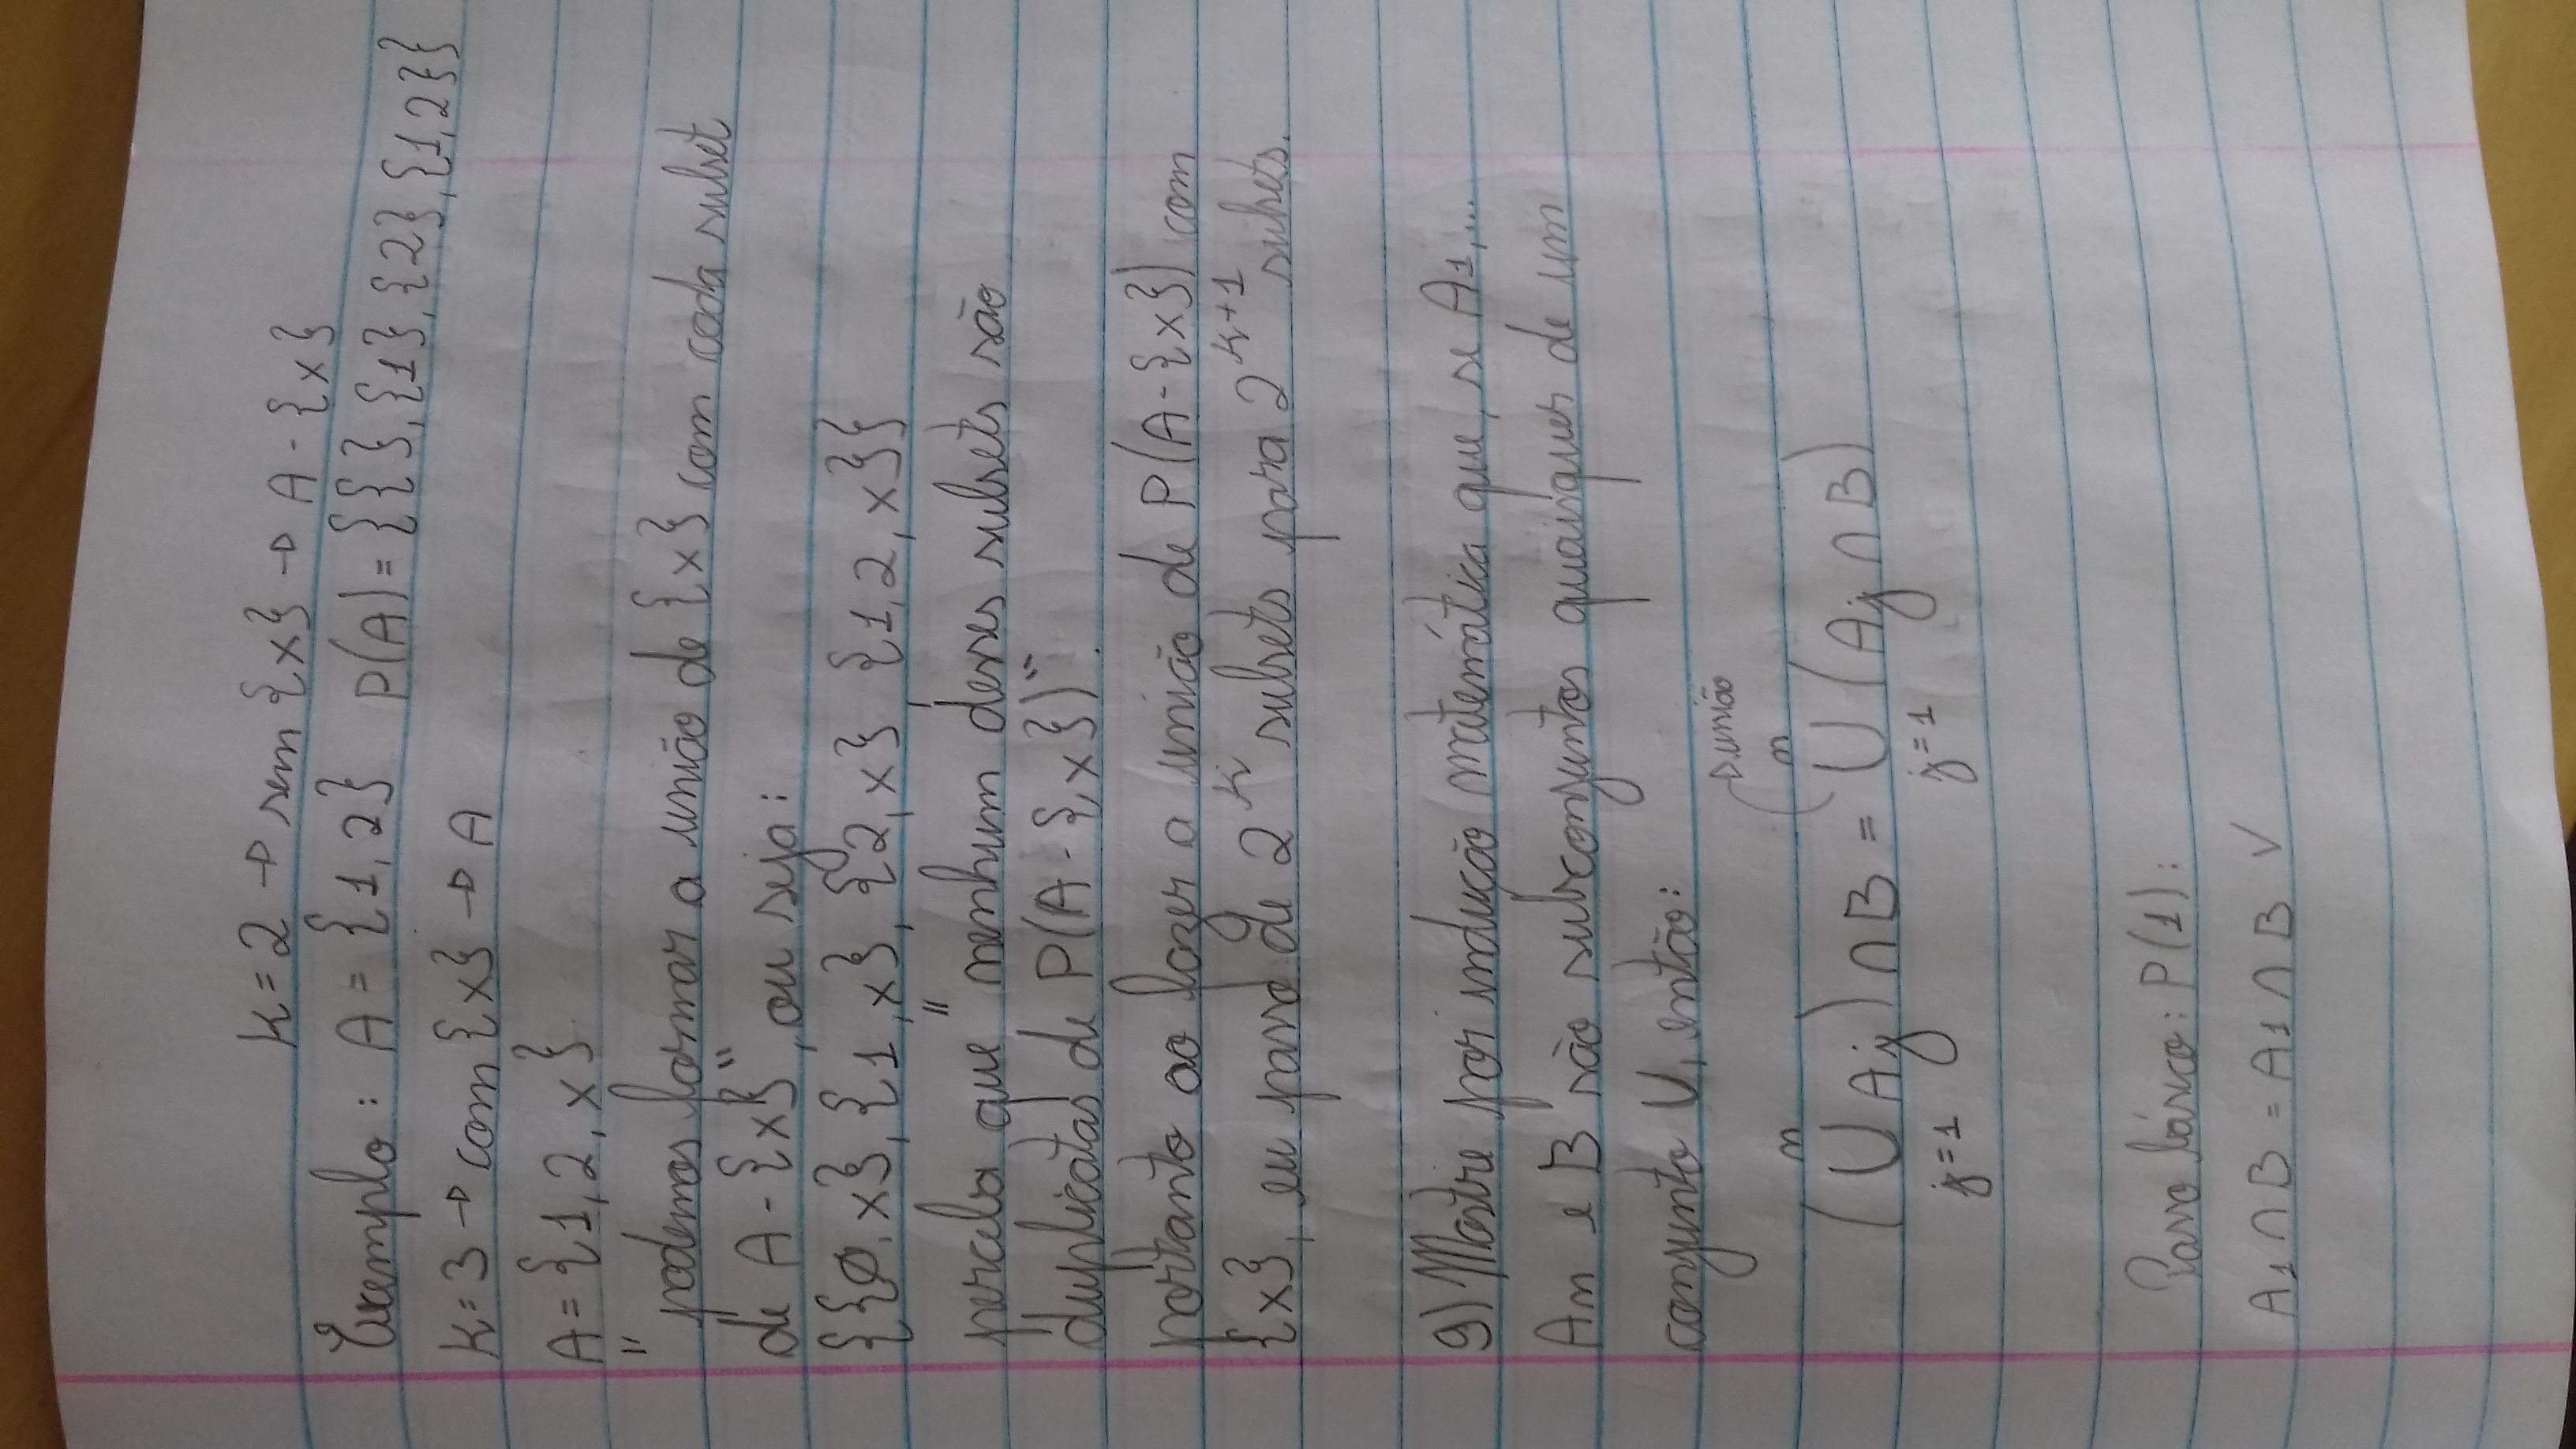 K=2 → sem {x} → A-{x}
Exemplo: A={1,2} P(A)={{},{1},{2},{1,2}}
K=3 → com {x} → A
A={1,2,x}
" podemos formar a união de {x} com cada subset
de A-{x}", ou seja:
{{∅,x},{1,x},{2,x} {1,2,x}}
perceba que "nenhum desses subsets são
duplicatas de P(A-{,x})".
portanto ao fazer a união de P(A-{x}) com
{x}, eu passo de 2^k subsets para 2^k+1 subsets.
9) Mostre por indução matemática que, se A1,...
An e B são subconjuntos quaisquer de um
conjunto U, então:
→ união
n n
(∪ Aj) ∩ B = ∪ (Aj ∩ B)
j=1 j=1
Passo básico: P(1):
A1 ∩ B = A1 ∩ B V